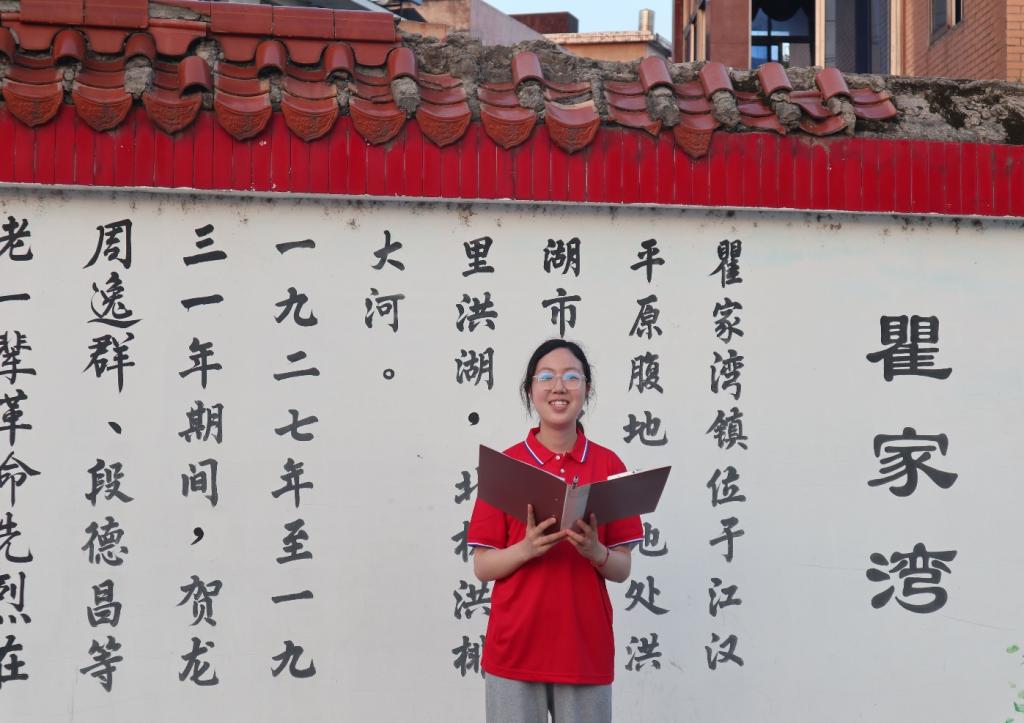 瞿家湾
瞿家湾镇位于江汉
平原腹地地处洪
湖市
里洪湖，北枕洪排
大河。
一九二七年至一九
三一年期间，贺龙
周逸群、段德昌等
老一辈革命先烈在